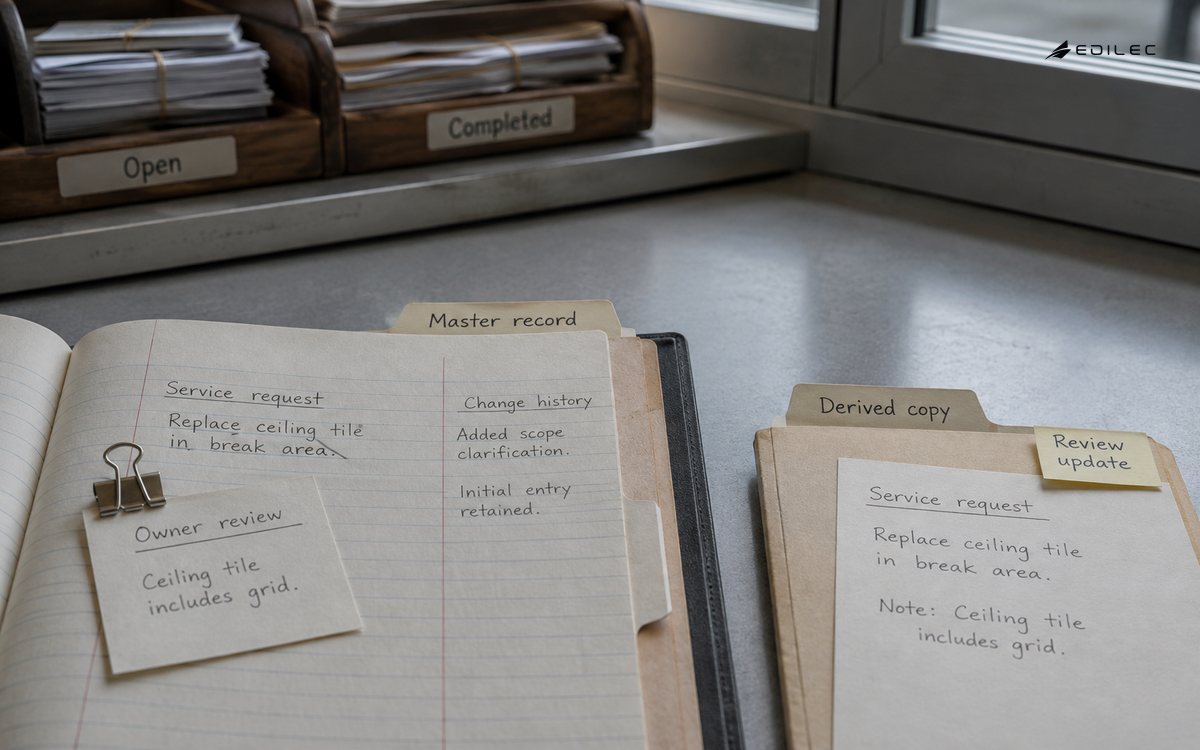 EDILEC
Open
Completed
Master record
Service request
Replace ceiling tile
in break area.
Change history
Added scope
clarification.
Initial entry
retained.
Owner review
Ceiling tile
includes grid.
Derived copy
Review
update
Service request
Replace ceiling tile
in break area.
Note: Ceiling tile
includes grid.